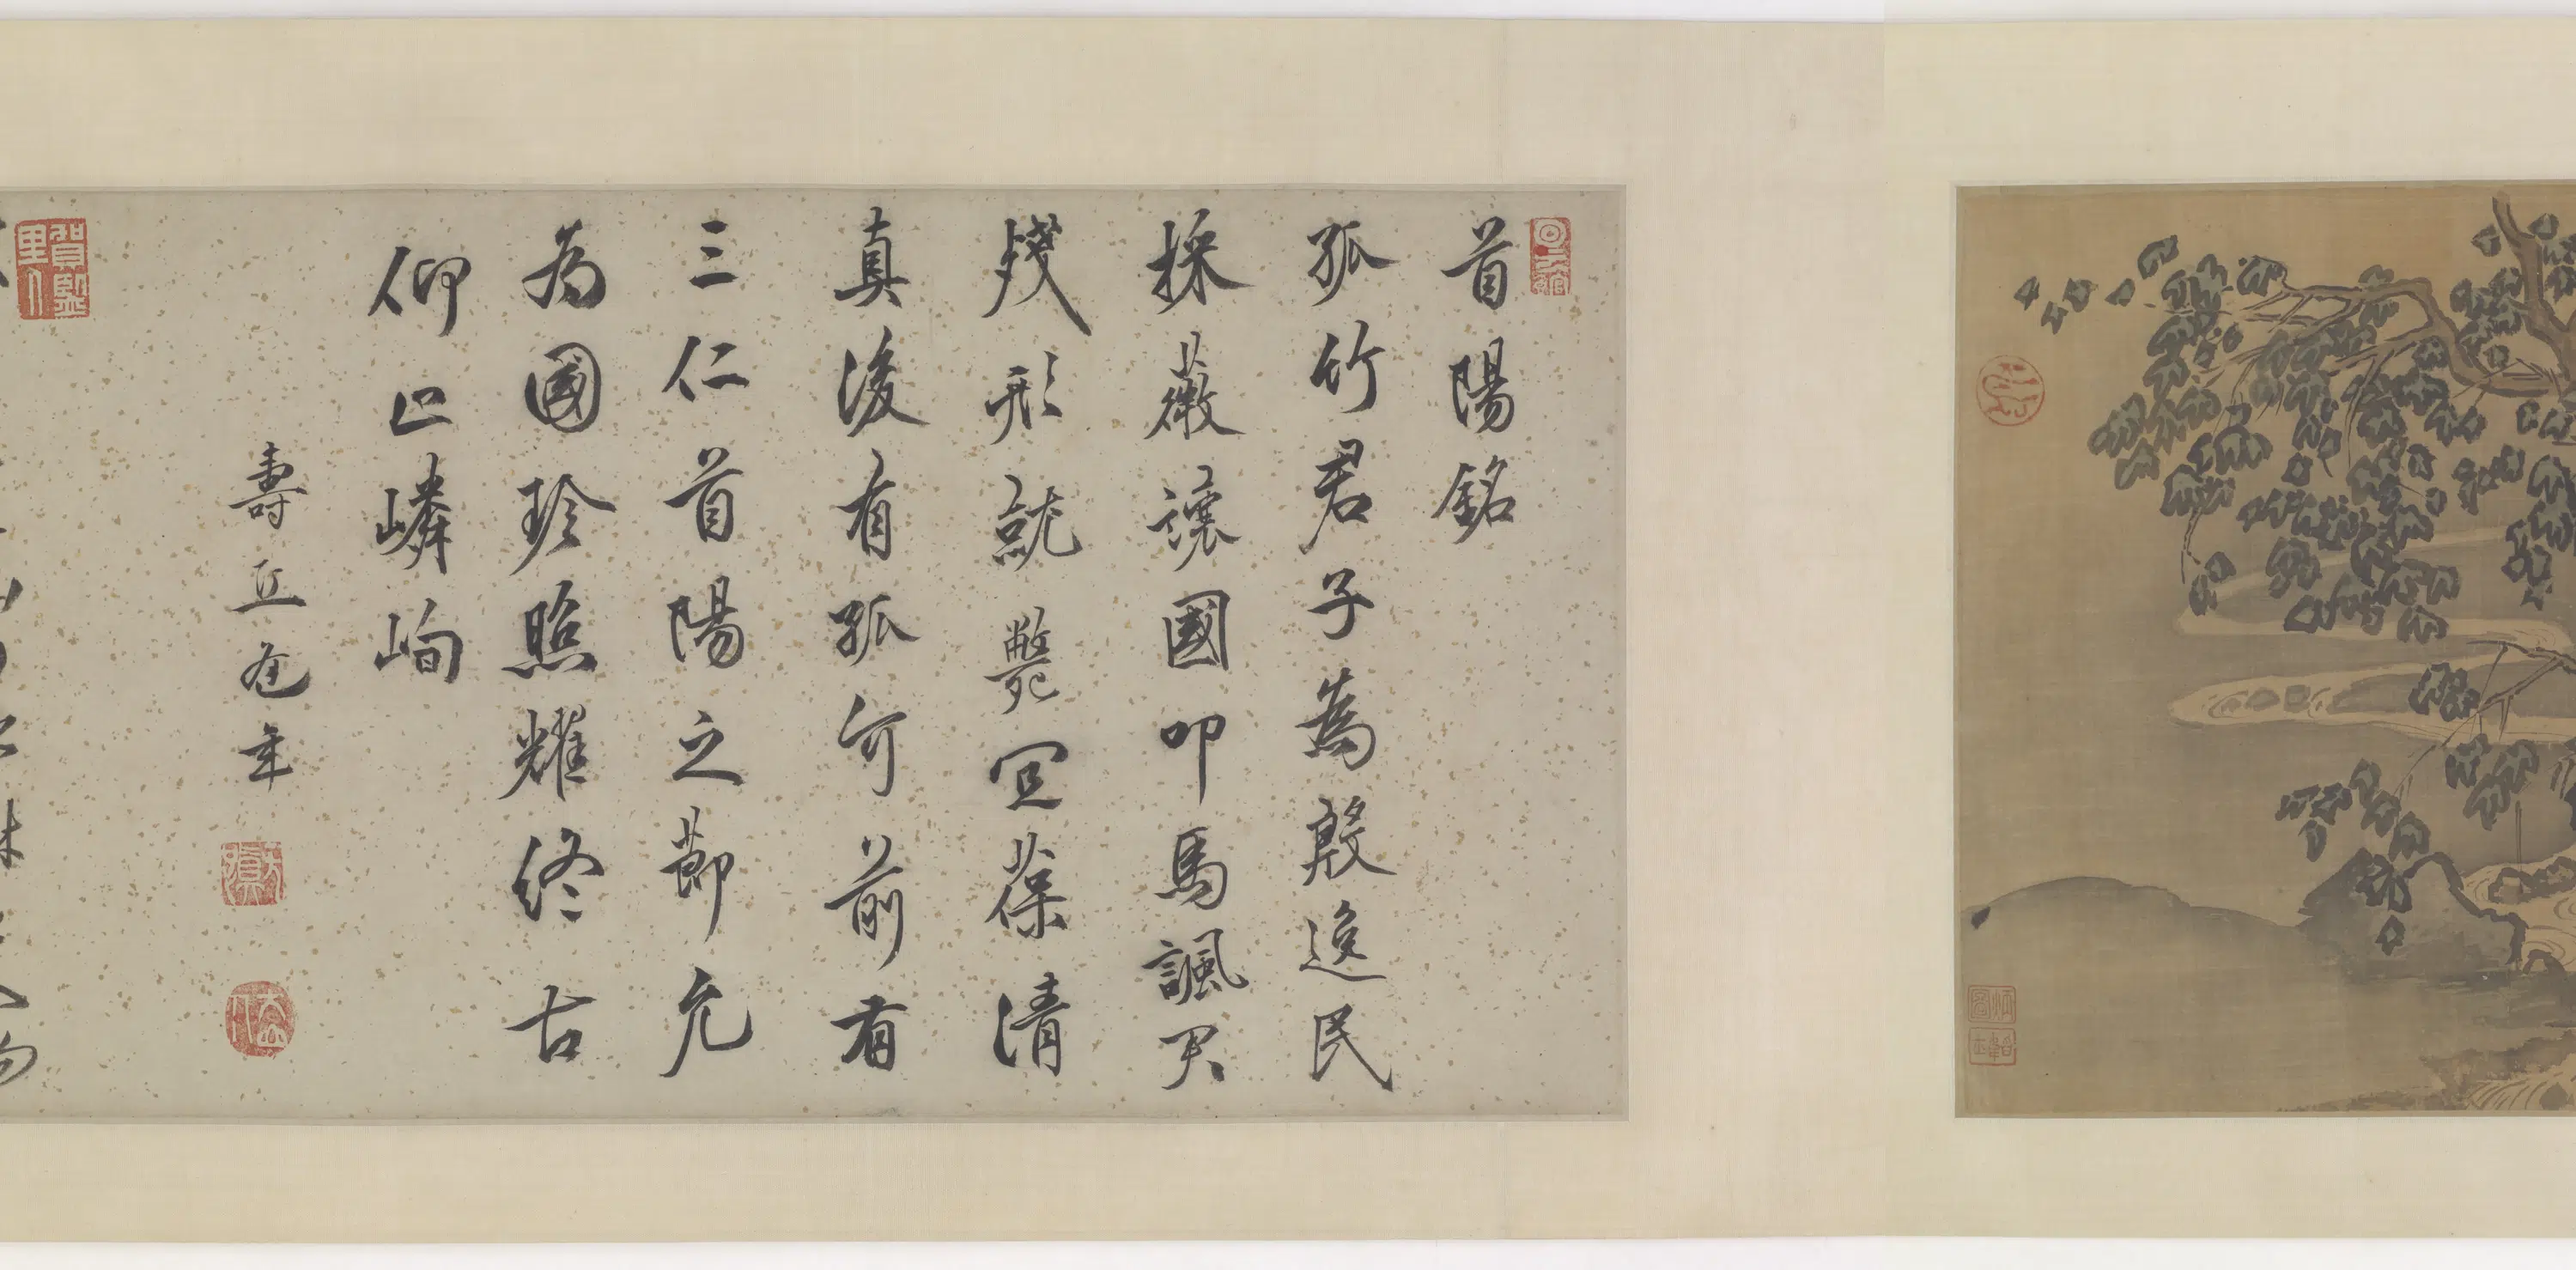 首陽銘
孤竹君子為殷逸民
採薇讓國叩馬諷
殘形就斃冝葆清
真後有孤竹前有
三仁首陽之節允
為國珍照耀終古
仰止嶙峋
壽丘年
賀監里人